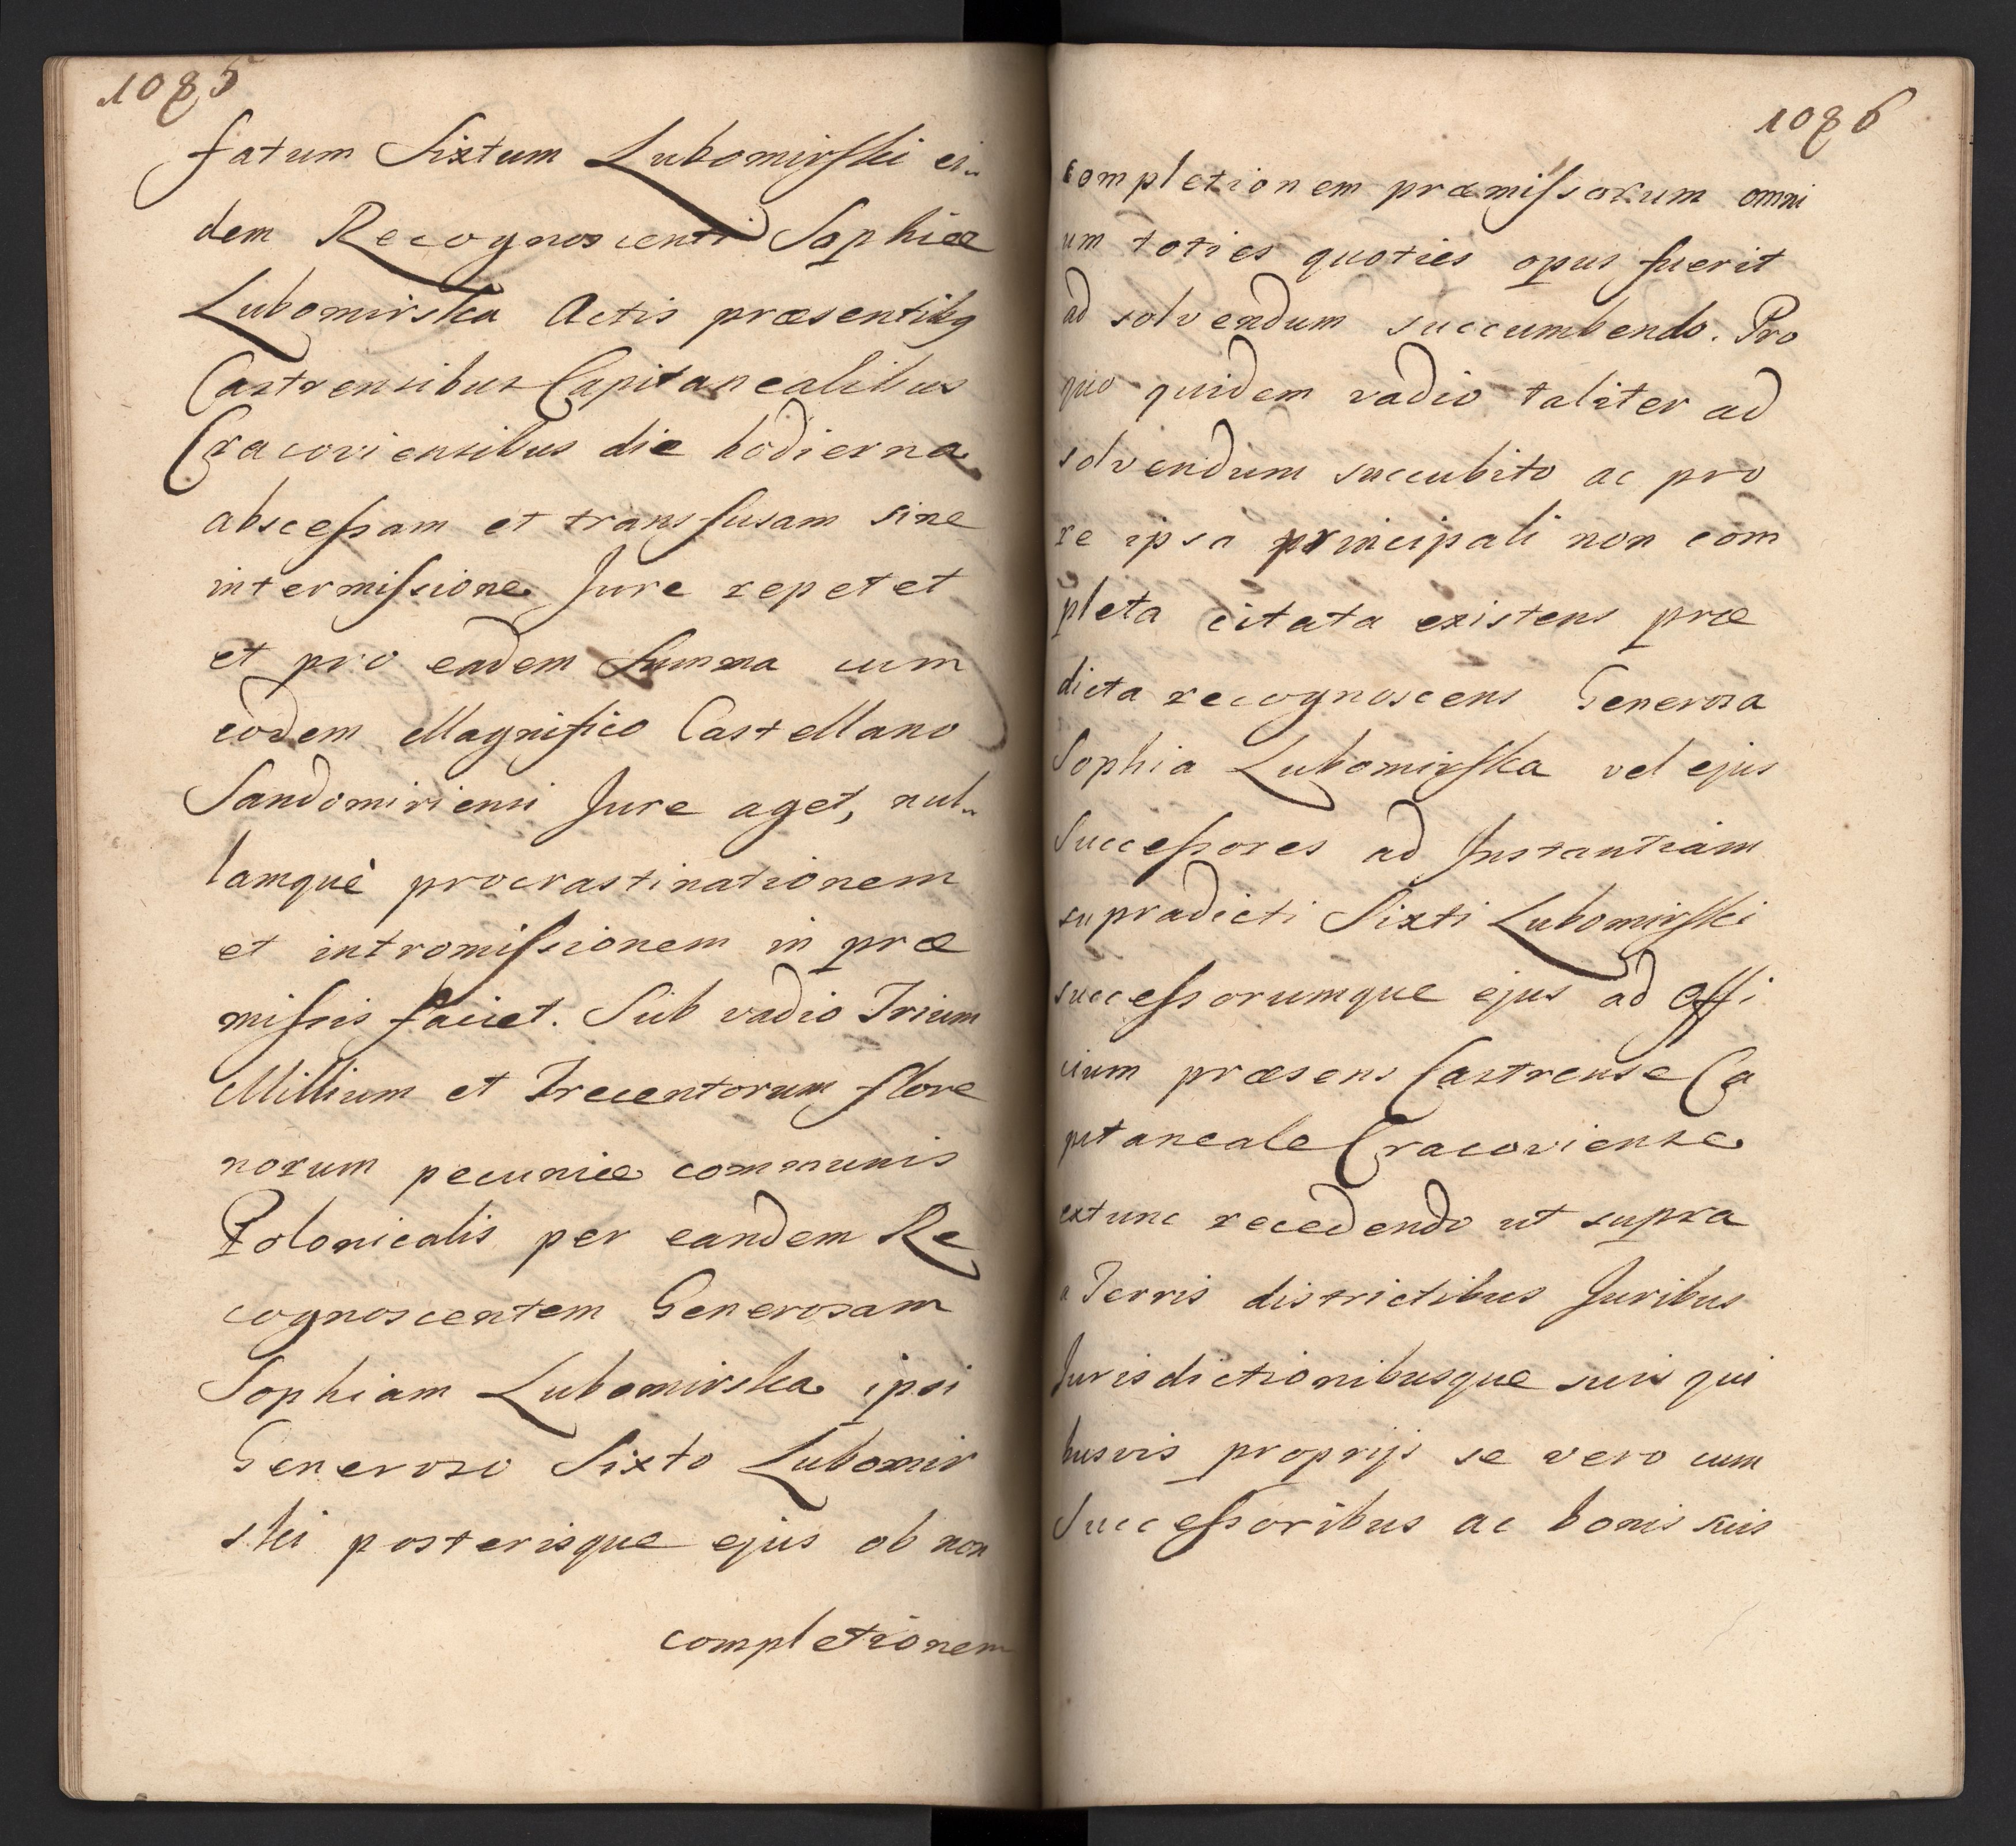 1085
fatum Sixtum Lubomirski ei„
dem Recognoscenti Sophiæ
Lubomirska Actis præsentibq
Castrensibus Capitanealibus
Cracoviensibus die hodierna
abscessam et transfusam sine
intermissione Jure repetet
et pro eadem Summa cum
eodem Magnifico Castellano
Sandomiriensi Jure aget, nul„
lamquè procrastinationem
et intromissionem in præ
missis faciet. Sub vadio Trium
Millium et Trecentorum flore
norum pecuniæ communis
Polonicalis per eandem Re
cognoscentem Generosam
Sophiam Lubomirska ipsi
Generoso Sixto Lubomir
ski posterisque ejus ob non
completionem
1086
completionem præmissorum omni
um toties quoties opus fuerit
ad solvendum succumbendo. Pro
quo quidem vadio taliter ad
solvendum succubito ac pro
re ipsa principali non com
pleta citata existens præ
dicta recognoscens Generosa
Sophia Lubomirska vel ejus
Successores ad Instantiam
supradicti Sixti Lubomirski
successorumque ejus ad offi
cium præsens Castrense Ca
pitaneale Cracoviense
extunc recedendo ut supra
a Terris districtibus Juribus
Jurisdictionibusque suis qui
busvis proprijs se vero cum
Successoribus ac bonis suis